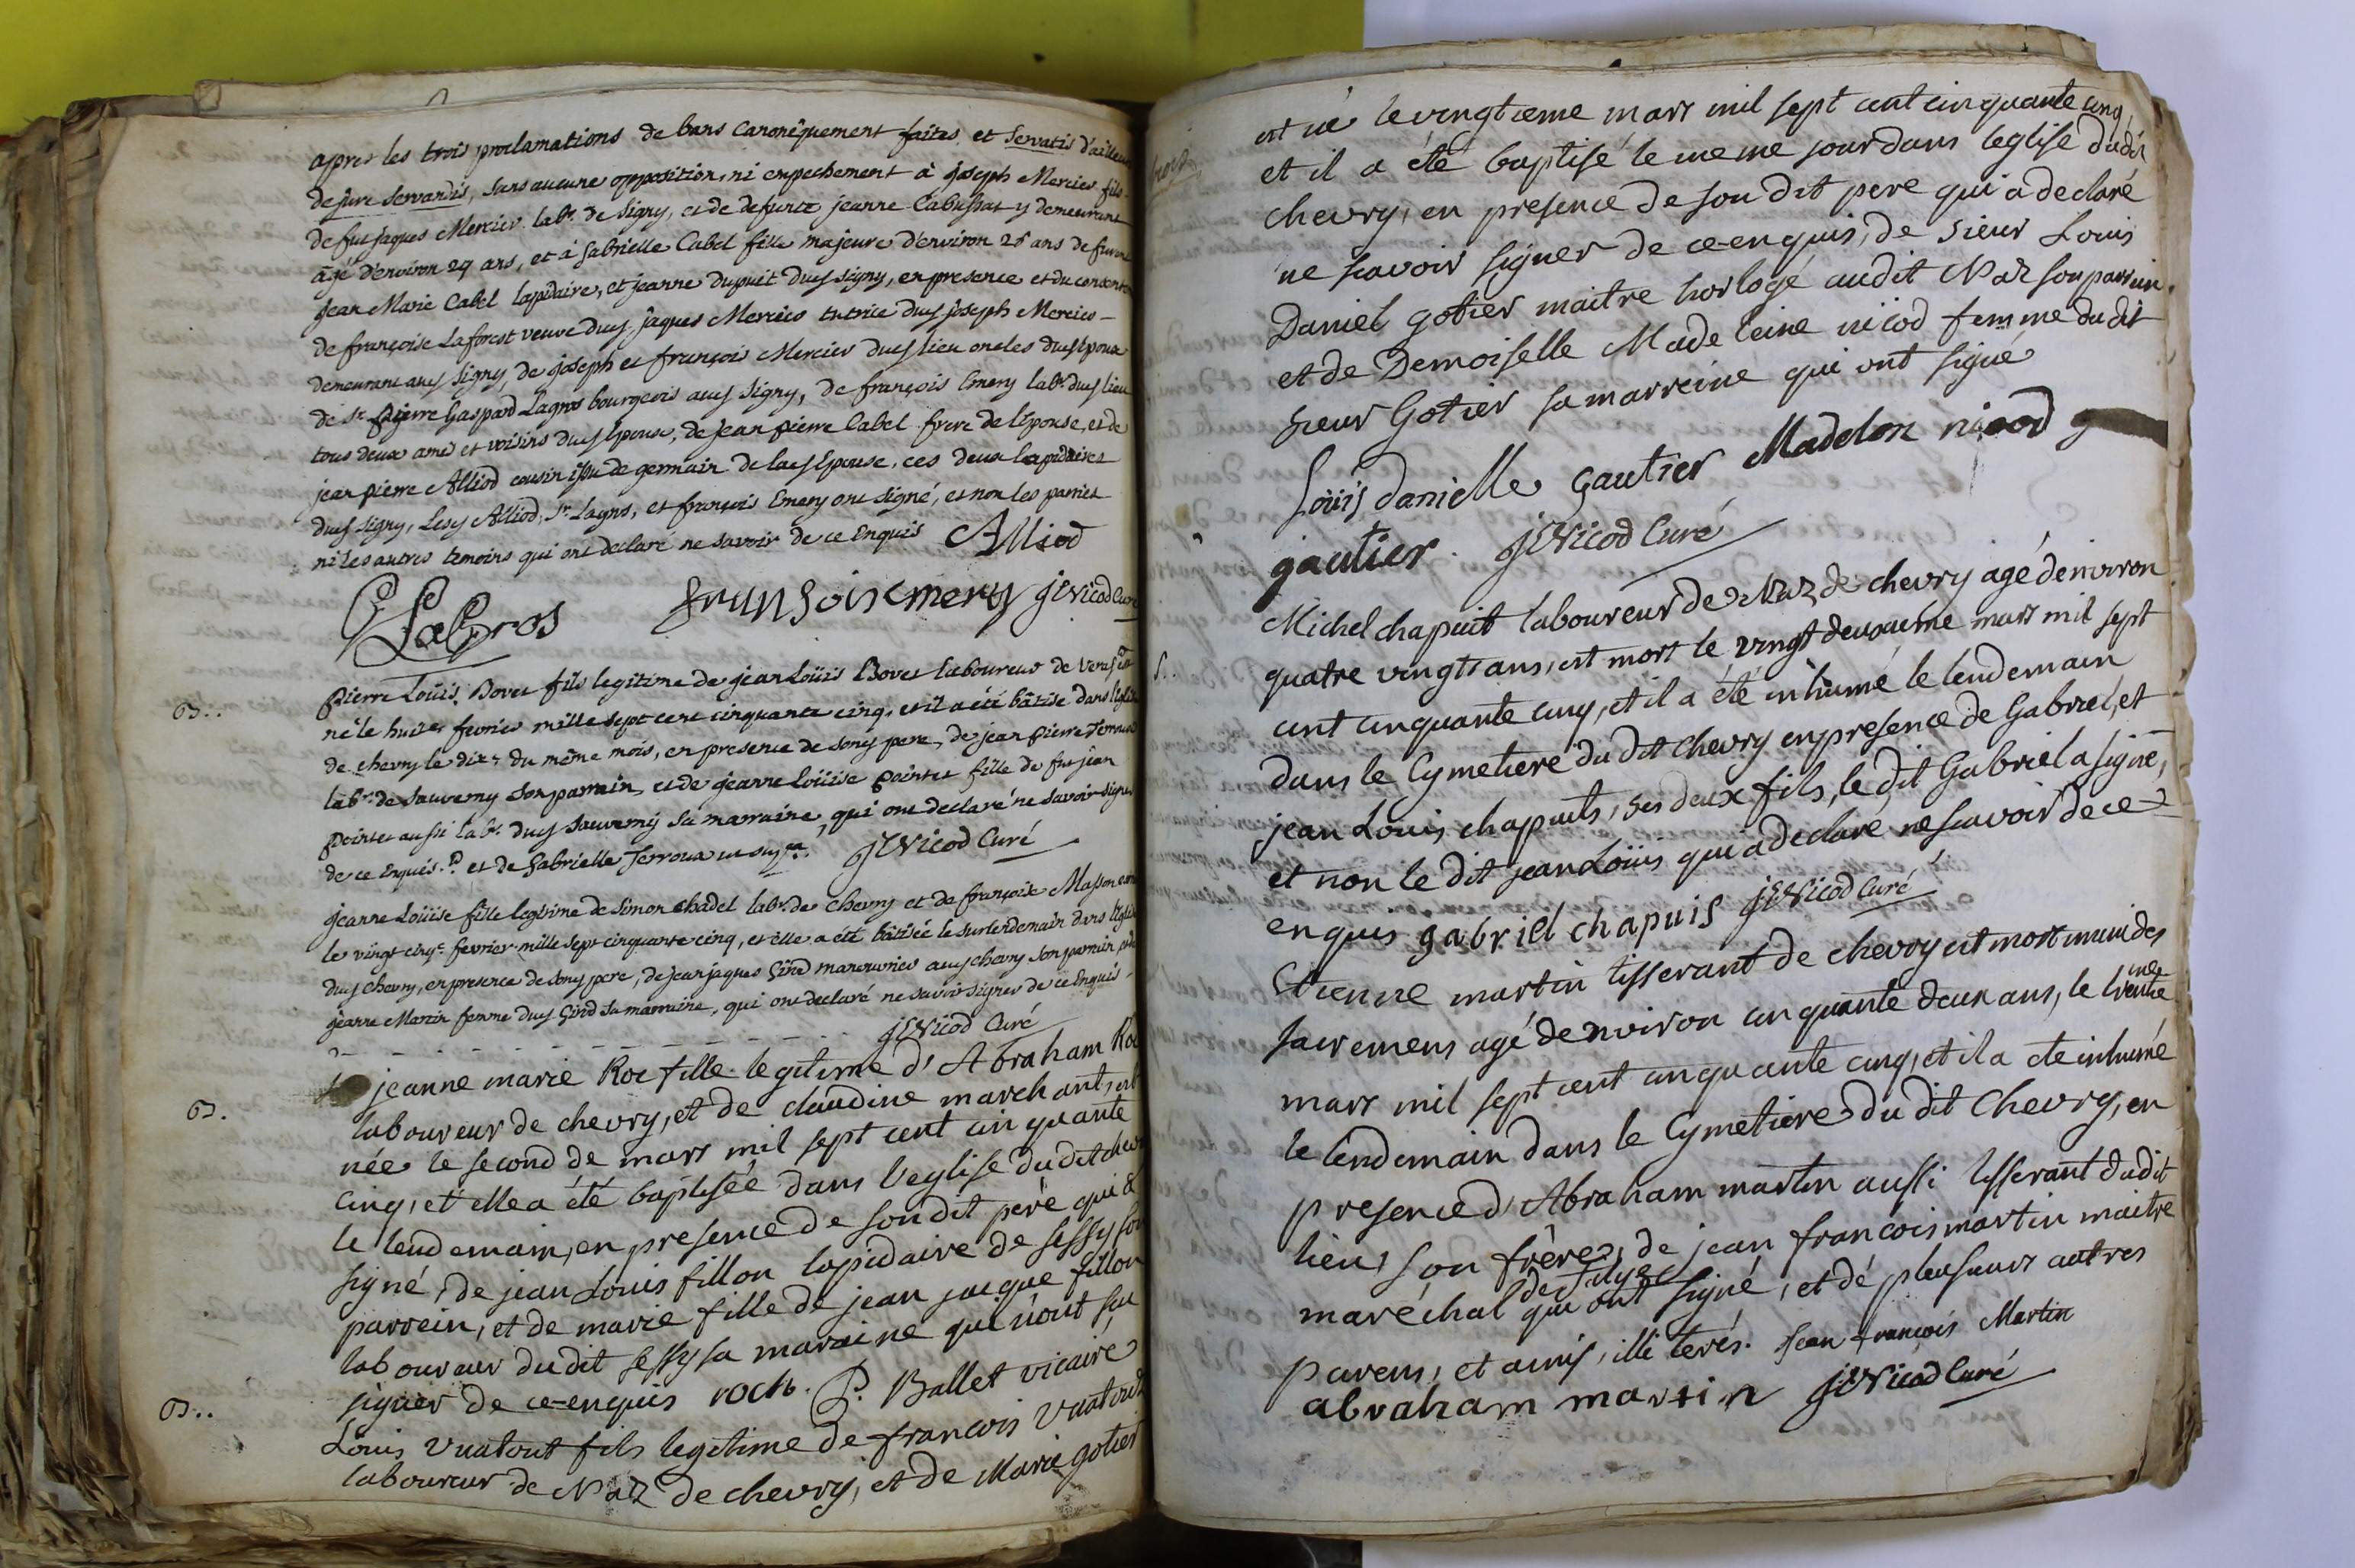 apres les trois proclamations de bans canoniquement faites et servatis d'ailleurs
de jure servandis, sans aucune opposition, ni empechement à joseph Mercier fils
de fut jaques Mercier labr. de Signy, et de defunte jeanne y demeurant
âgé d'environ 27 ans, et à Gabrielle Cabel fille majeure d'environ 28 ans de
Jean Marie Cabel lapidaire, et jeanne Dupuit dudt signy, en presence et du
de françoise Laforest veuve dudt jaques Mercier tutrice dudt joseph Mercier
demeurant audt Signy, de joseph et françois Mercier dudt lieu oncles dudt Epoux
de Sr. pierre Gaspard Lagros bourgeois audt Signy, de françois Emery labr. dudt lieu
tous deux amis et voisins dudt Epoux, de jean pierre Cabel frere de l'épouse, et de
jean pierre Alliod cousin issu de germain de ladt Epouse, ces deux lapidaires
dudt Signy, Lesdt Alliod, Sr. Lagros, et françois Emery ont signé, et non les parties
ni les autres temoins qui ont declaré ne savoir de ce Enquis Alliod
Lagros fransois emery JE Nicod Curé
B..
pierre Loüis Bovet fils legitime de jean Loüis Bovet laboureur de
né le huit fevrier mille sept cent cinquante cinq, et il a été bâtisé dans l'eglise
de chevry le dix du même mois, en presence de sondt pere, de jean pierre
labr. de Sauverny son parrain, et de jeanne Loüise pointet fille de fut jean
pointet aussi labr. dudt Sauverny sa marraine, qui ont declaré ne savoir signer
de ce Enquis. et de Gabrielle Terroux JE Nicod Curé
jeanne Loüise fille legitime de Simon Chadel labr. de Chevry et de françoise Masson
le vingt cinq fevrier mille sept cinquante cinq, et elle a été bâtisée le surlendemain dans l'Eglise
dudt Chevry, en presence de sondt pere, de jean jaques Girod manouvrier audt chevry son parrain,
jeanne Martin femme dudt Girod sa marraine, qui ont declaré ne savoir signer de ce Enquis
JE Nicod Curé
B.
jeanne marie Roc fille legitime d'Abraham Roc
laboureur de chevry, et de claudine marchant, est
née le second de mars mil sept cent cinquante
cinq, et elle a été baptisée dans l'eglise dudit
le lendemain, en presence de son dit père qui a
signé, de jean Louis fillon lapidaire de sessy son
parrein, et de marie fille de jean jaque fillon
laboureur dudit sessy sa maraine qui n'ont su
signer de ce enquis roch. P. Ballet vicaire
B..
Louis Vuatout fils legitime de francois Vuatout
laboureur de Naz de chevry, et de Marie gotier
est né le vingtieme mars mil sept cent cinquante cinq,
et il a été baptisé le meme jour dans leglise dudit
chevry, en presence de son dit pere qui a declaré
ne scavoir signer de ce enquis, de sieur Louis
Daniel gotier maitre horlogé audit Naz son parrein.
et de Demoiselle Madeleine nicod femme dudit
sieur Gotier sa marreine qui ont signé
Loüis danielle gautier Madelon nicod g
gautier. JE Nicod Curé
S.
Michel chapuit laboureur de Naz de chevry agé denviron
quatre vingts ans, est mort le vingt deuxieme mars mil sept
cent cinquante cinq, et il a été inhumé le lendemain
dans le Cymetiere du dit Chevry en presence de Gabriel, et
jean Louis chapuits, ses deux fils, le dit Gabriel a signé,
et non le dit jean Loüis qui a declaré ne scavoir de ce
enquis gabriel chapuis JE Nicod Curé
Etienne martin tisserant de chevry est mort muni des
sacremens agé denviron cinquante deux ans, le trentieme
mars mil sept cent cinquante cinq, et il a ete inhumé
le lendemain dans le Cymetiere du dit Chevry, en
presence d'Abraham martin aussi tisserant dudit
lieu, son frère, de jean francois martin maitre
maréchal qui ont signé, et de plusieurs autres
parens, et amis, illiterés. Jean francois Martin
abraham martin JE Nicod Curé